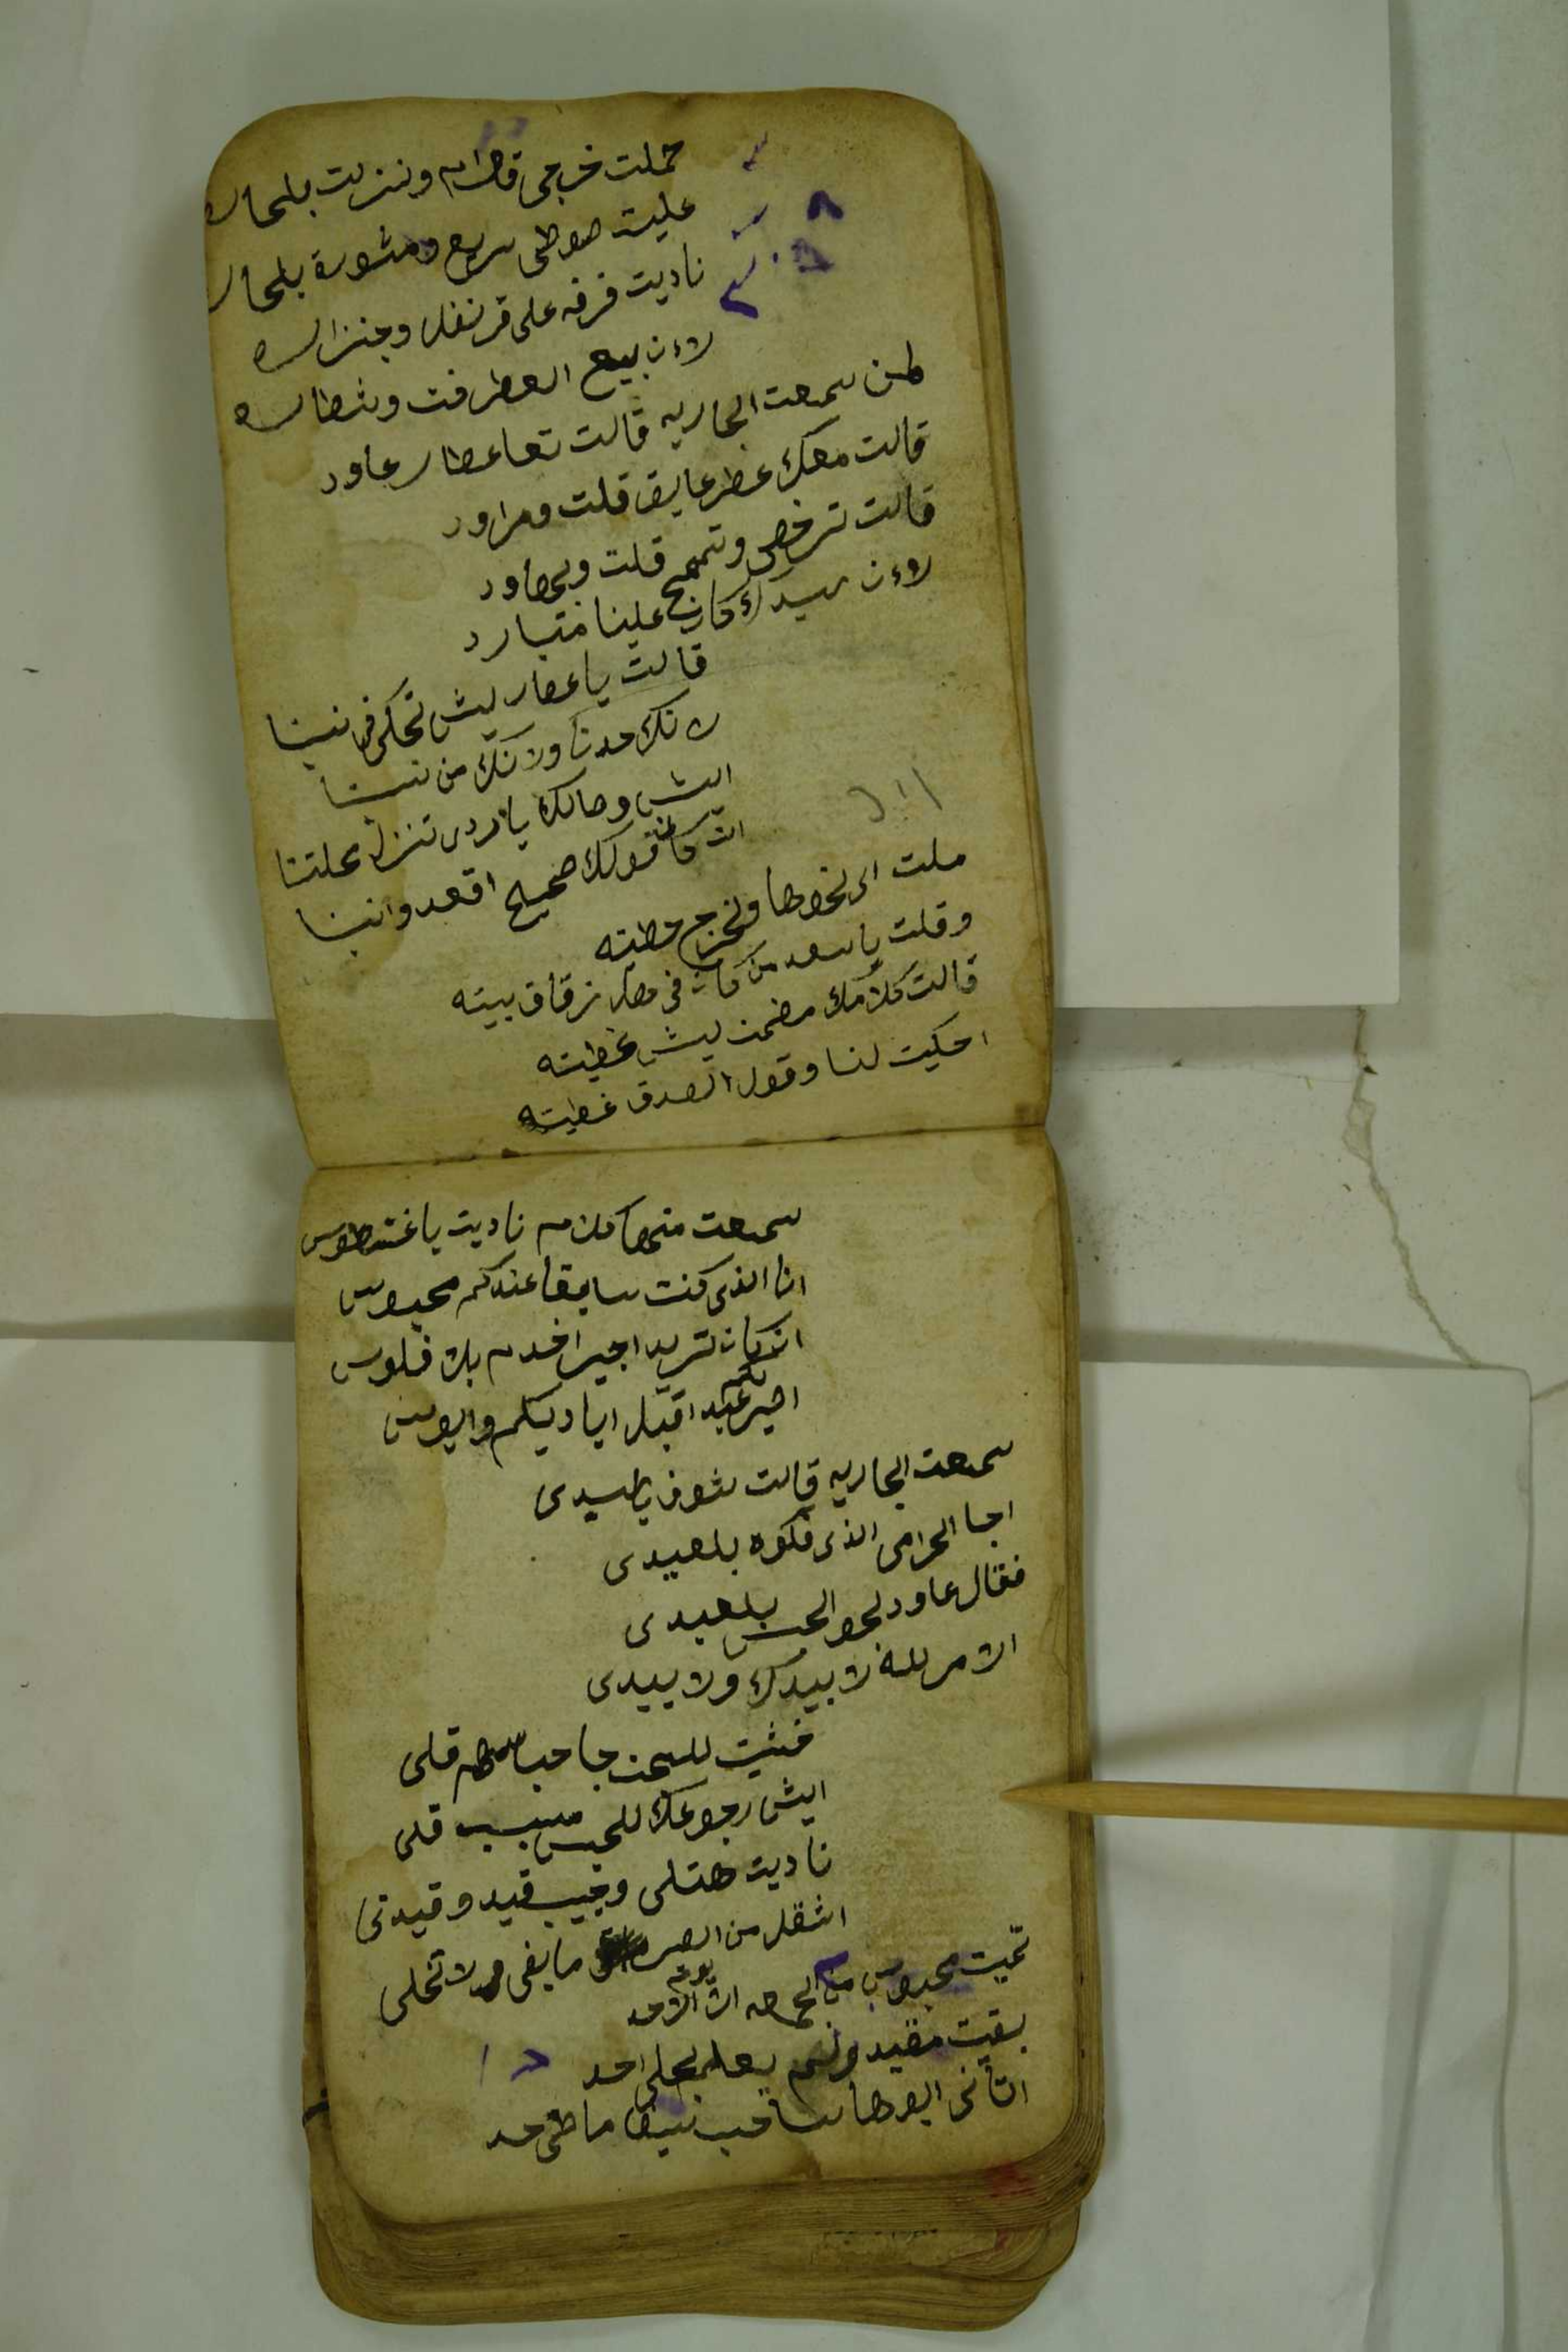 حملت خرجي قوام ونزلت بلحاره
عليت صوطي سريع ومشورة بلحاره
ناديت قرفه على قرنفل وجنزاره
لاءن بيع العطر فت وشطاره
لمن سمعت الجاريه قالت تعا عطار عاود
قالت معك عطر عايق قلت ومراود
قالت ترخص وتسمح قلت وبجاود
لاءن سيدك كان علينا متبارد
قالت يا عطار ليش تحكي في نيتنا
لانك حدنا ولانك من
ايش وصالك يا ردي تنزل محلتنا
ان كان قولك صحيح اقعد واتينا
ملت الى نحوها ولخرج حطيته
وقلت يا سعد من كان في هل زقاق بيته
قالت كلامك مضمن ليش غطيته
احكيت لنا وقول الصدق غطيته
سمعت منها كلام ناديت يا
انا الذي كنت سابقا عندكم محبوس
انكان تريد اجير اخدم بلا فلوس
اصير لكم عبد اقبل اياديكم وابوس
سمعت الجاريه قالت شوف يا سيدي
اجا الحرامي الذي فكوه بلعيدي
فقال عاود لحو الحبس بلعيدي
الامر لله لا بيدك ولا بيدي
مشيت للسجن جا حباسها قلي
ايش رجوعك للحبس سبب قلي
ناديت هتلي وجيب قيد وقيدني
اثقل من الصر ما يفي ولا تخلي
تميت محبوس من الجمعه الى يوم الاحد
بقيت مقيد ولم يعلم بحلي احد
اتاني ابوها ساحب سيف ما حد